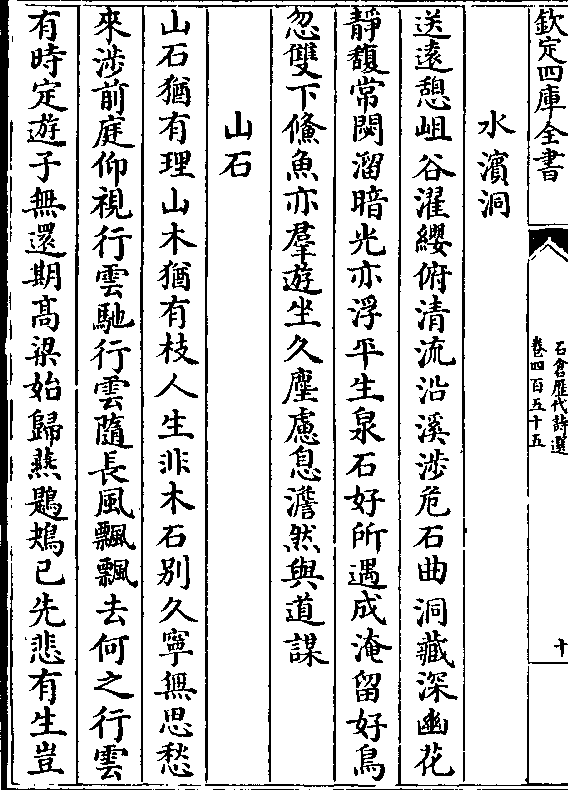 欽定四庫全書
石倉歷代詩選
卷四百五十五
十
水濱洞
送遠憩岨谷濯纓俯清流沿溪涉危石曲洞藏深幽花
靜馥常閟溜暗光亦浮平生泉石好所遇成淹留好鳥
忽雙下鯈魚亦羣遊坐久塵慮息澹然與道謀
山石
山石猶有理山木猶有枝人生非木石別久寧無思愁
來涉前庭仰視行雲馳行雲隨長風飄飄去何之行雲
有時定遊子無還期高梁始歸燕鶗鴂已先悲有生豈